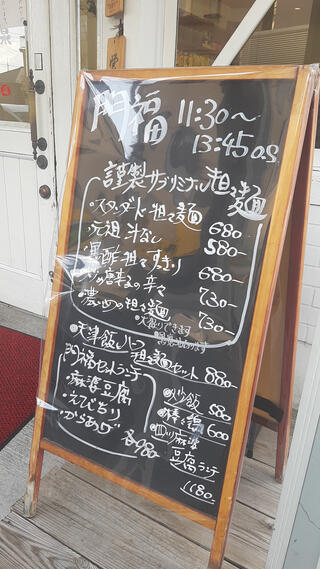 開福 11:30〜
13:45 o.s
謹製サブリミナル担々麺
・スタンダード担々麺 680
元祖汁なし 580-
黒酢担々すぎり 680-
唐辛の辛々 730-
濃いめの担々麺 730-
・大盛りできます
・天津飯ハーフ担々麺セット 880
開福セットランチ
・麻婆豆腐
・えびちり
・からあげ
各980-
・炒飯 580
600
・四川麻婆
豆腐ランチ
1180-